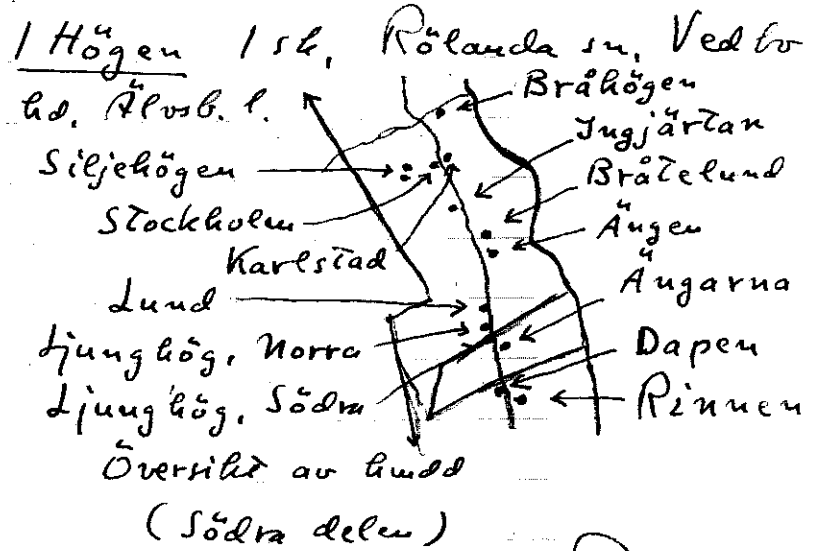 1 Högen 1 sk, Rölanda sn, Vedbo
hd. Älvsb. l.
Bråhögen
Ingjärtan
Siljehögen
Bråtelund
Stockholm
Ängen
Karlstad
Ängarna
Lund
Ljunghög, Norra
Dapen
Ljunghög, Södra
Rinnen
Översikt av
(Södra delen)